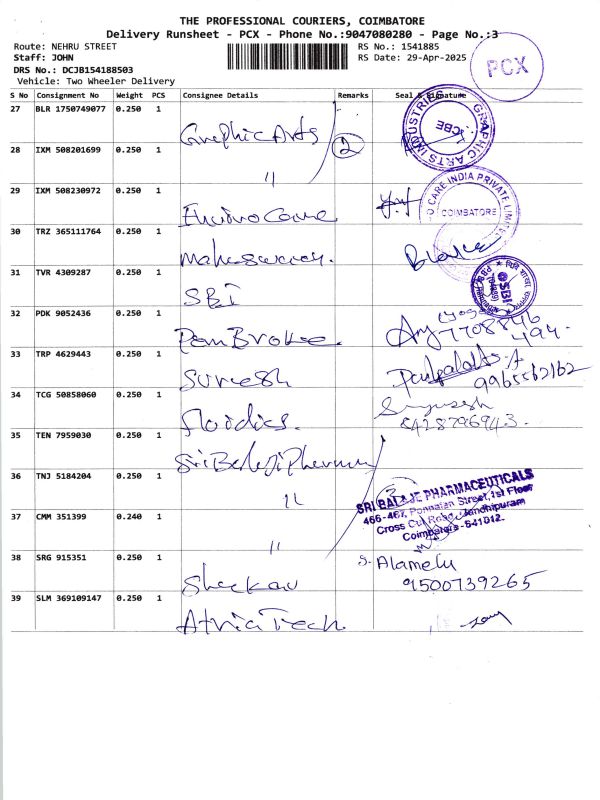 THE PROFESSIONAL COURIERS, COIMBATORE
Delivery Runsheet - PCX - Phone No.:9047080280 - Page No.:3
Route: NEHRU STREET
RS No.: 1541885
Staff: JOHN
RS Date: 29-Apr-2025
PCX
DRS No.: DCJB154188503
Vehicle: Two Wheeler Delivery
S No Consignment No Weight PCS Consignee Details Remarks Seal & Signature
27 BLR 1750749077 0.250 1 Graphic Arts
GRAPHIC ARTS INDUSTRIES
CBE
28 IXM 508201699 0.250 1 " 2
29 IXM 508230972 0.250 1 Enviro Care
CARE INDIA PRIVATE LIMITED
COIMBATORE
30 TRZ 365111764 0.250 1
31 TVR 4309287 0.250 1 SBI
SBI
32 PDK 9052436 0.250 1 Pem Broke.
7708846
494.
33 TRP 4629443 0.250 1 Suresh
34 TCG 50858060 0.250 1 fluidics.
35 TEN 7959030 0.250 1 Sri Balaji Pharma
36 TNJ 5184204 0.250 1 " 3
SRI BALAJE PHARMACEUTICALS
466-467, Ponnaian Street, 1st Floor
Cross Cut Road, Gandhipuram
Coimbatore-641012.
37 CMM 351399 0.240 1 "
38 SRG 915351 0.250 1 S. Alamelu
9500739265
39 SLM 369109147 0.250 1 Tech.